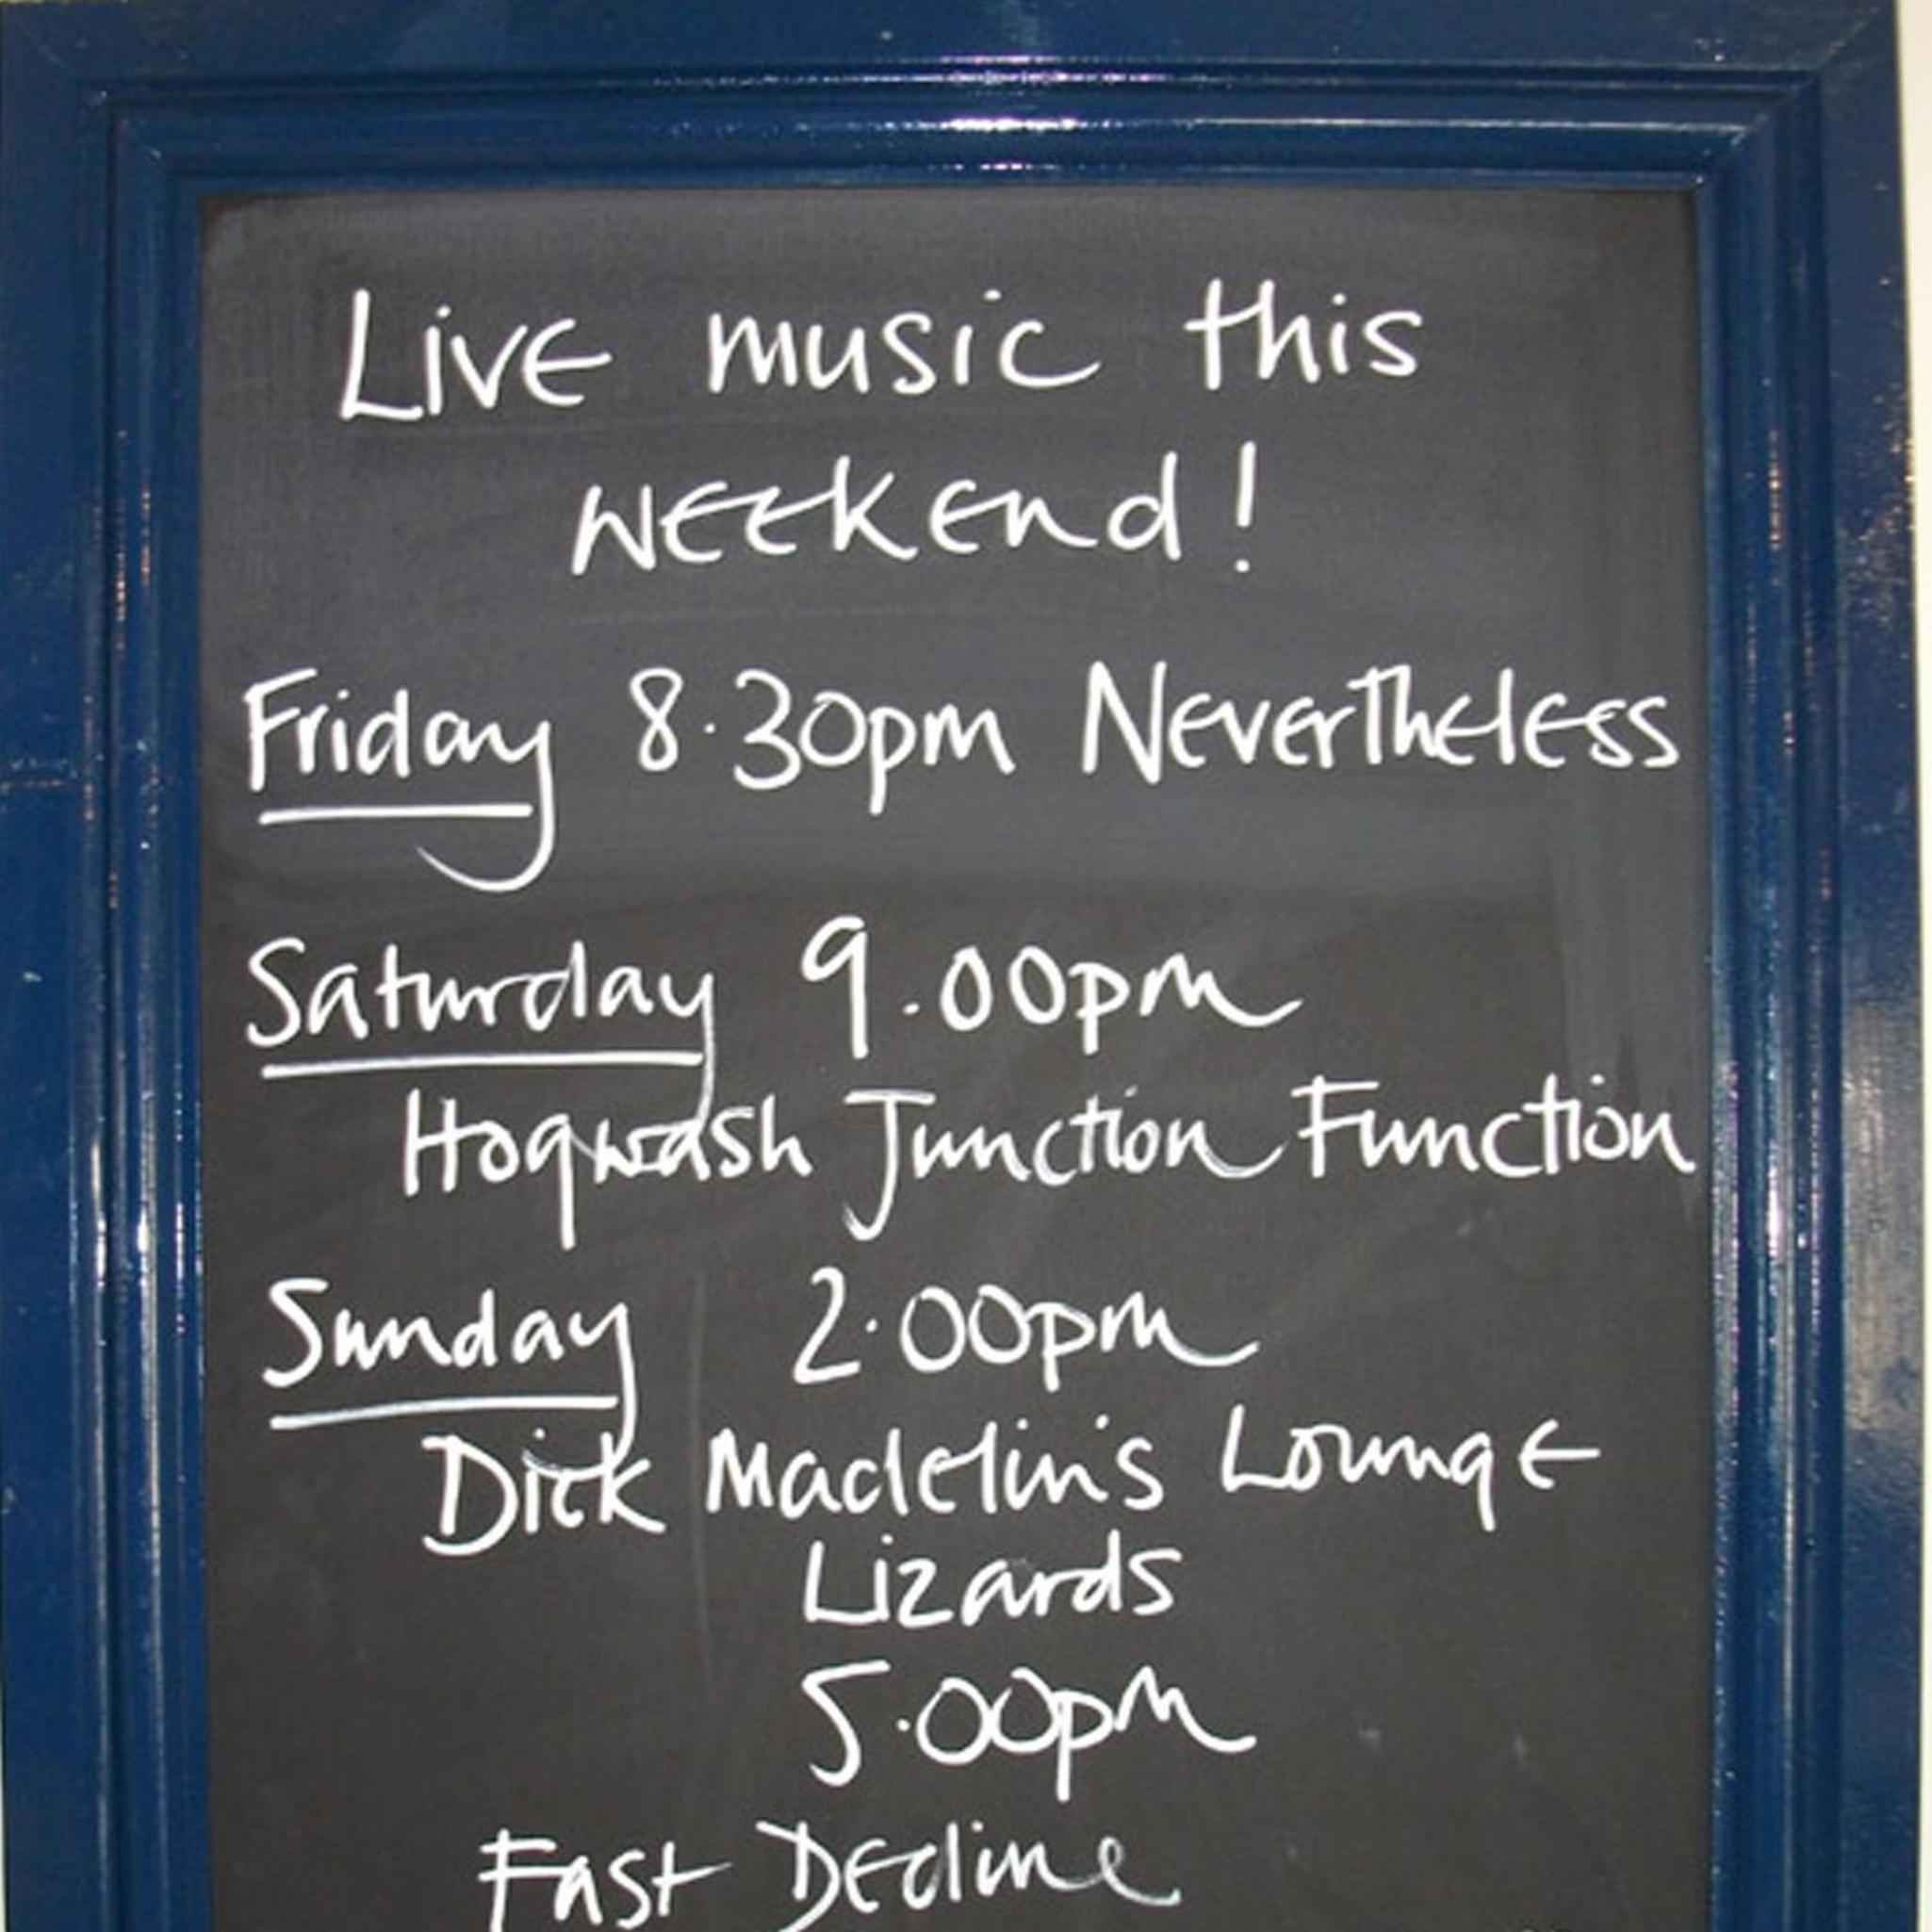 Live music this
weekend!
Friday 8.30pm Nevertheless
Saturday 9.00pm
Hogwash Junction Function
Sunday 2.00pm
Dick Madelin's Lounge
Lizards
5.00pm
Fast Decline